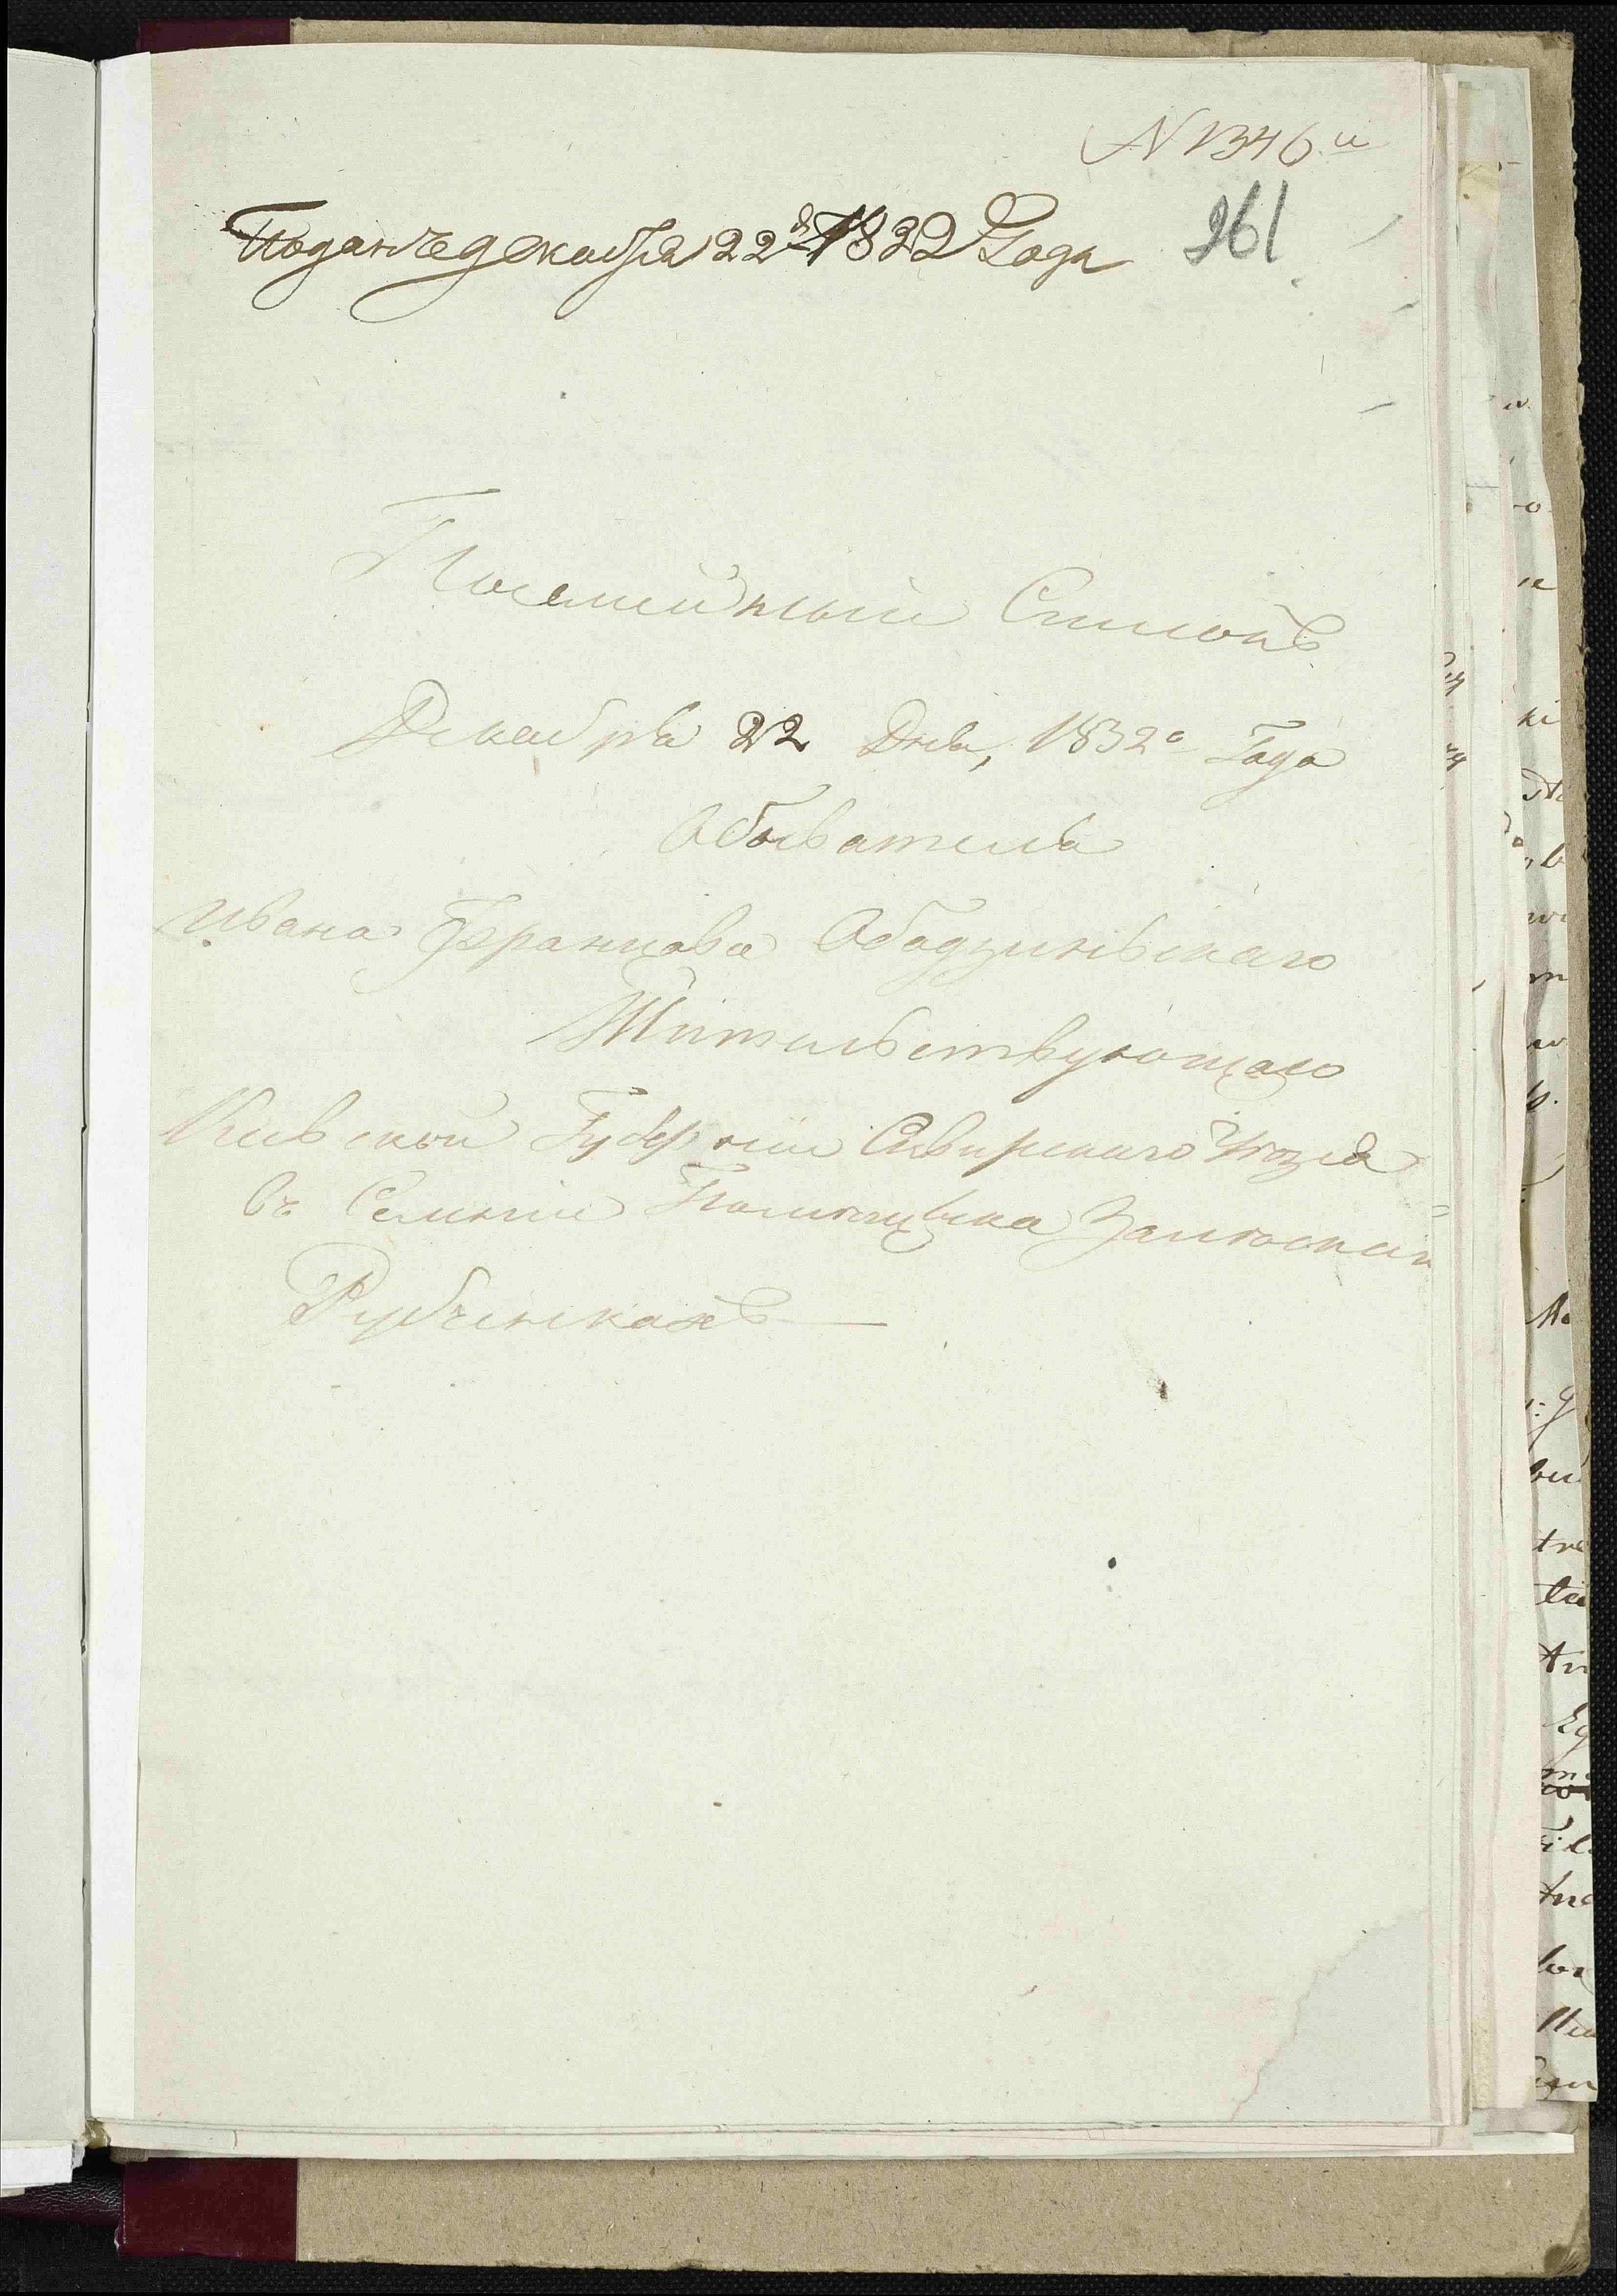 N 1346й
Поданъ декабря 22 д 1832 Года 261
Посемейный Списокъ
Декабря 22 Дня, 1832о Года
Обывателя
Ивана Францова Ободзинскаго
Жительствующаго
Киевской Губернии Сквирскаго Уезда
въ Селении Помещика